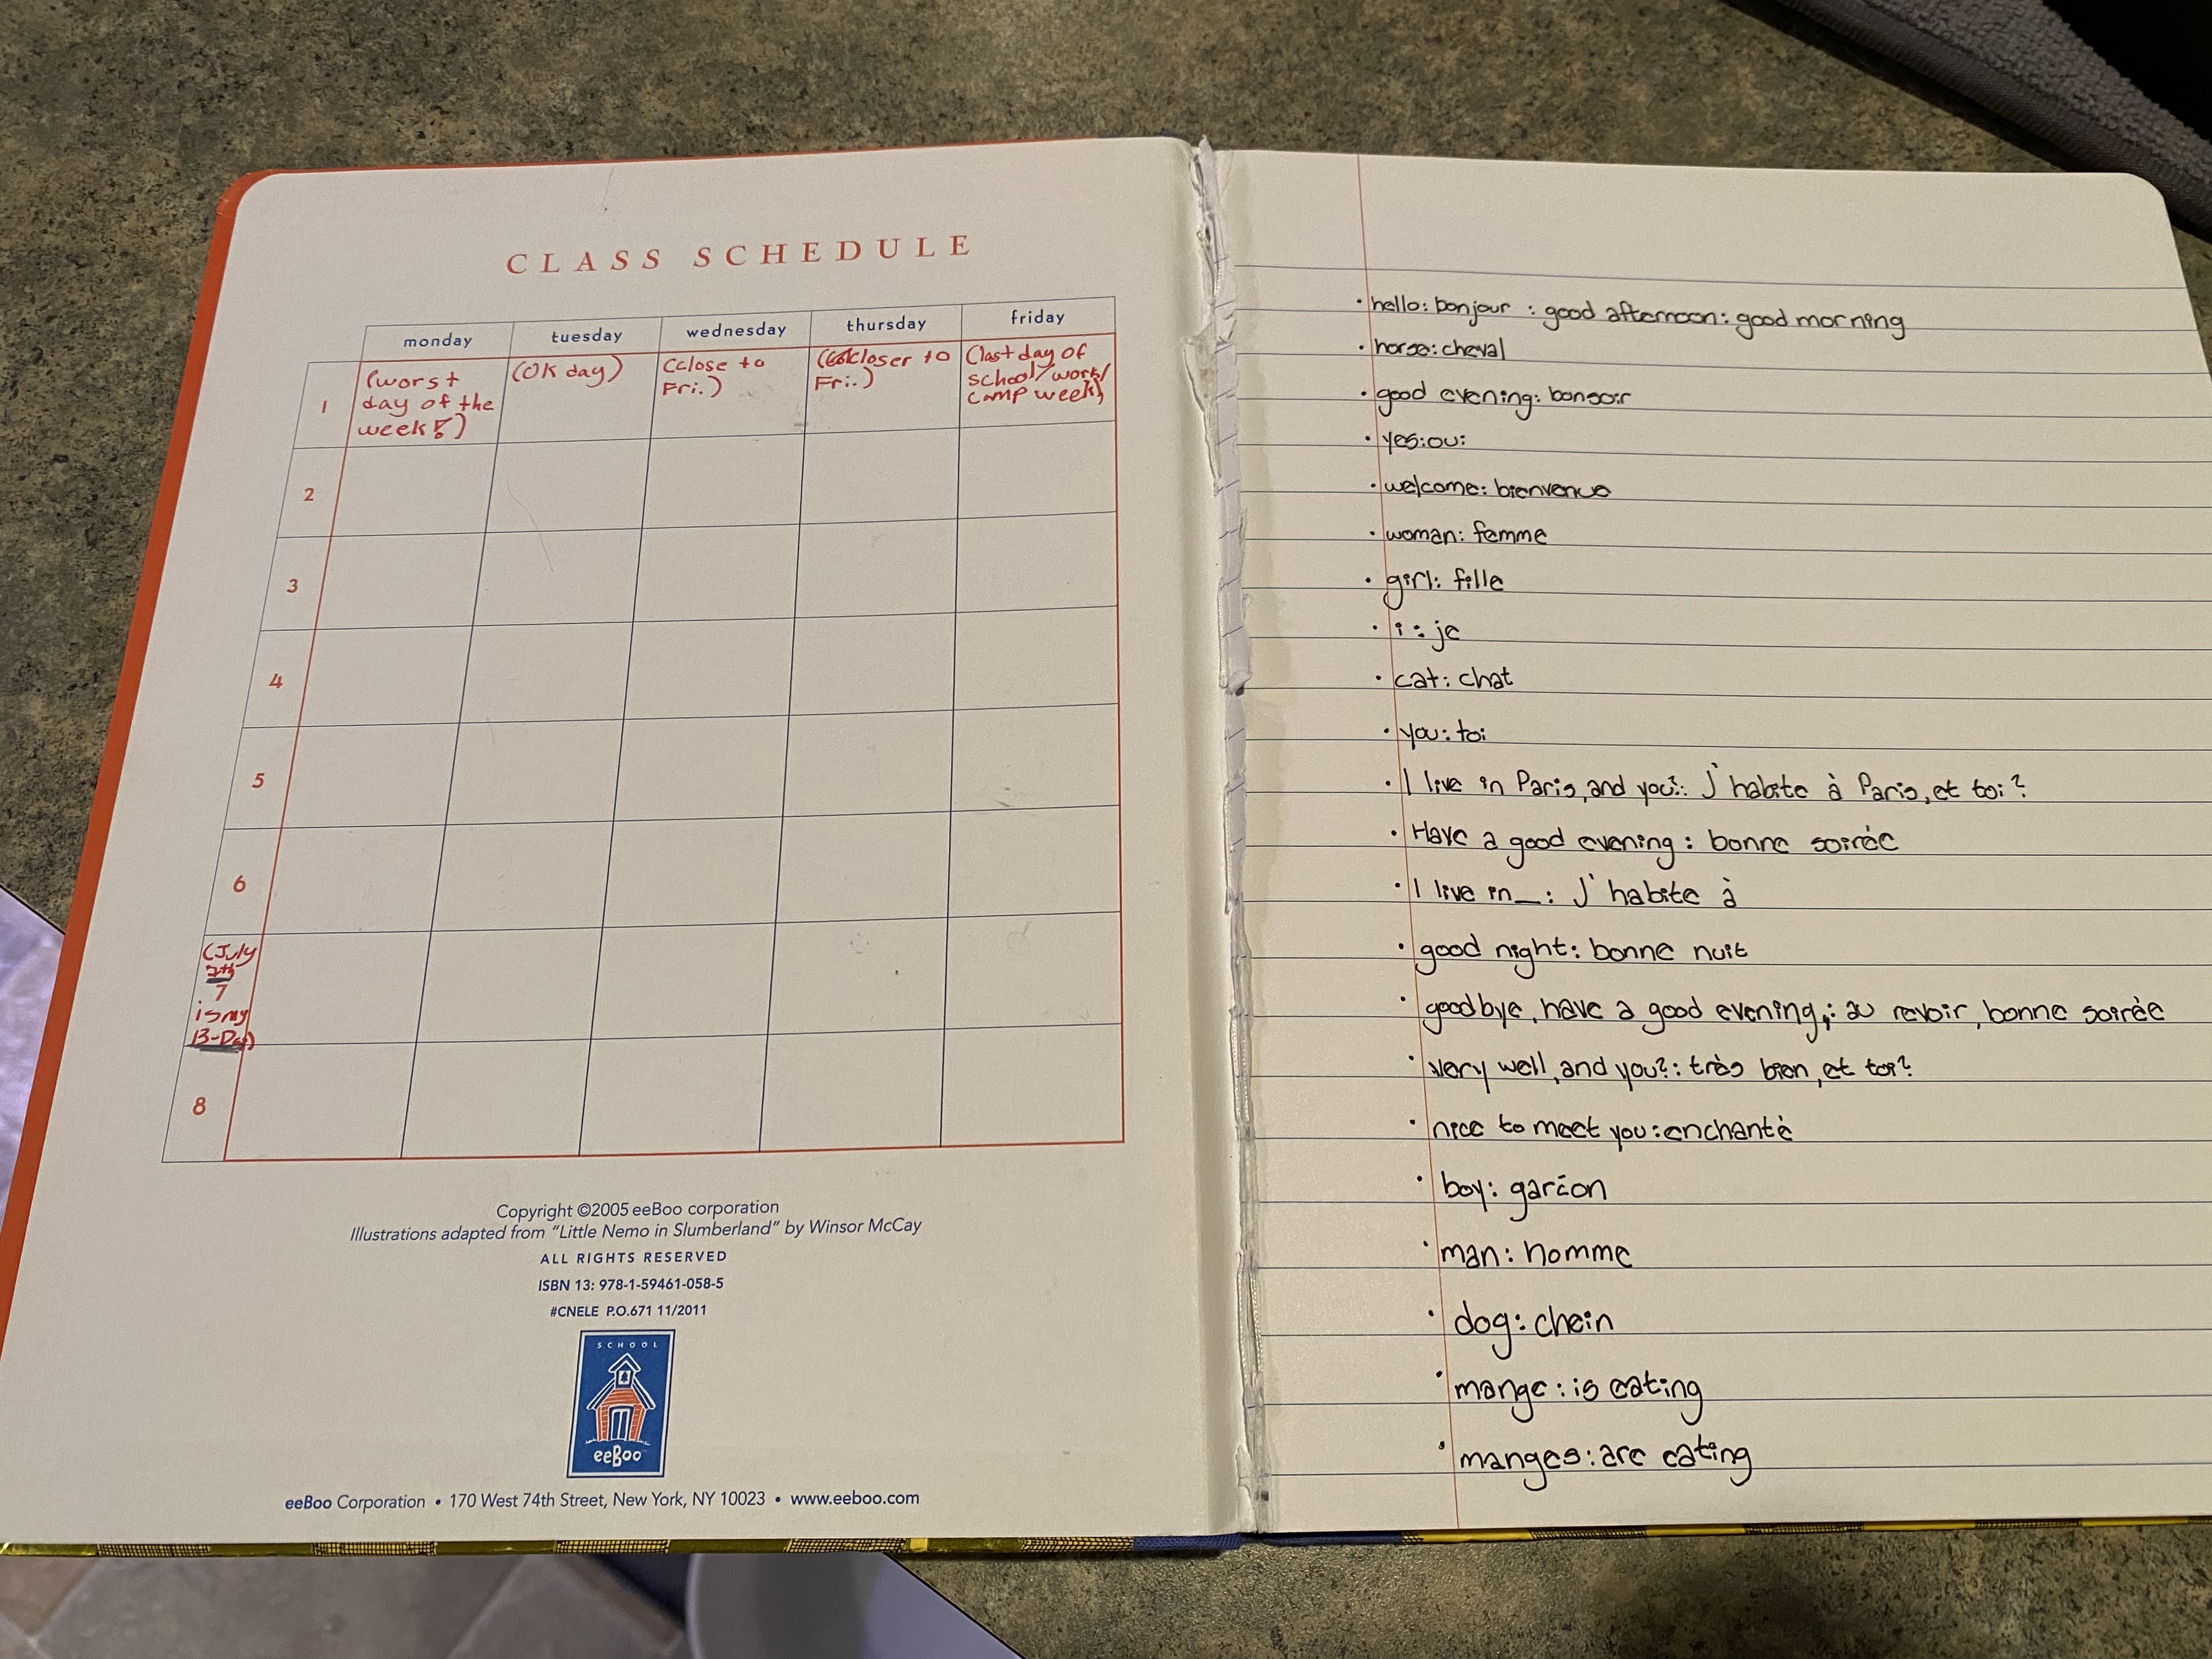 CLASS SCHEDULE
monday tuesday wednesday thursday friday
1
(worst
day of the
week!)
(OK day)
(close to
Fri.)
(closer to
Fri.)
(last day of
school/work/
camp week)
2
3
4
5
6
(July
7th
7
is my
B-Day)
8
Copyright ©2005 eeBoo corporation
Illustrations adapted from "Little Nemo in Slumberland" by Winsor McCay
ALL RIGHTS RESERVED
ISBN 13: 978-1-59461-058-5
#CNELE P.O.671 11/2011
SCHOOL
eeBoo
eeBoo Corporation • 170 West 74th Street, New York, NY 10023 • www.eeboo.com
• hello: bonjour : good afternoon: good morning
• horse: cheval
• good evening: bonsoir
• yes: oui
• welcome: bienvenue
• woman: femme
• girl: fille
• i: je
• cat: chat
• you: toi
• I live in Paris, and you?: J'habite à Paris, et toi?
• Have a good evening: bonne soirée
• I live in_: J'habite à
• good night: bonne nuit
• goodbye, have a good evening,: au revoir, bonne soirèe
• very well, and you?: très bien, et toi?
• nice to meet you: enchantè
• boy: garcon
• man: homme
• dog: chein
• mange: is eating
• manges: are eating